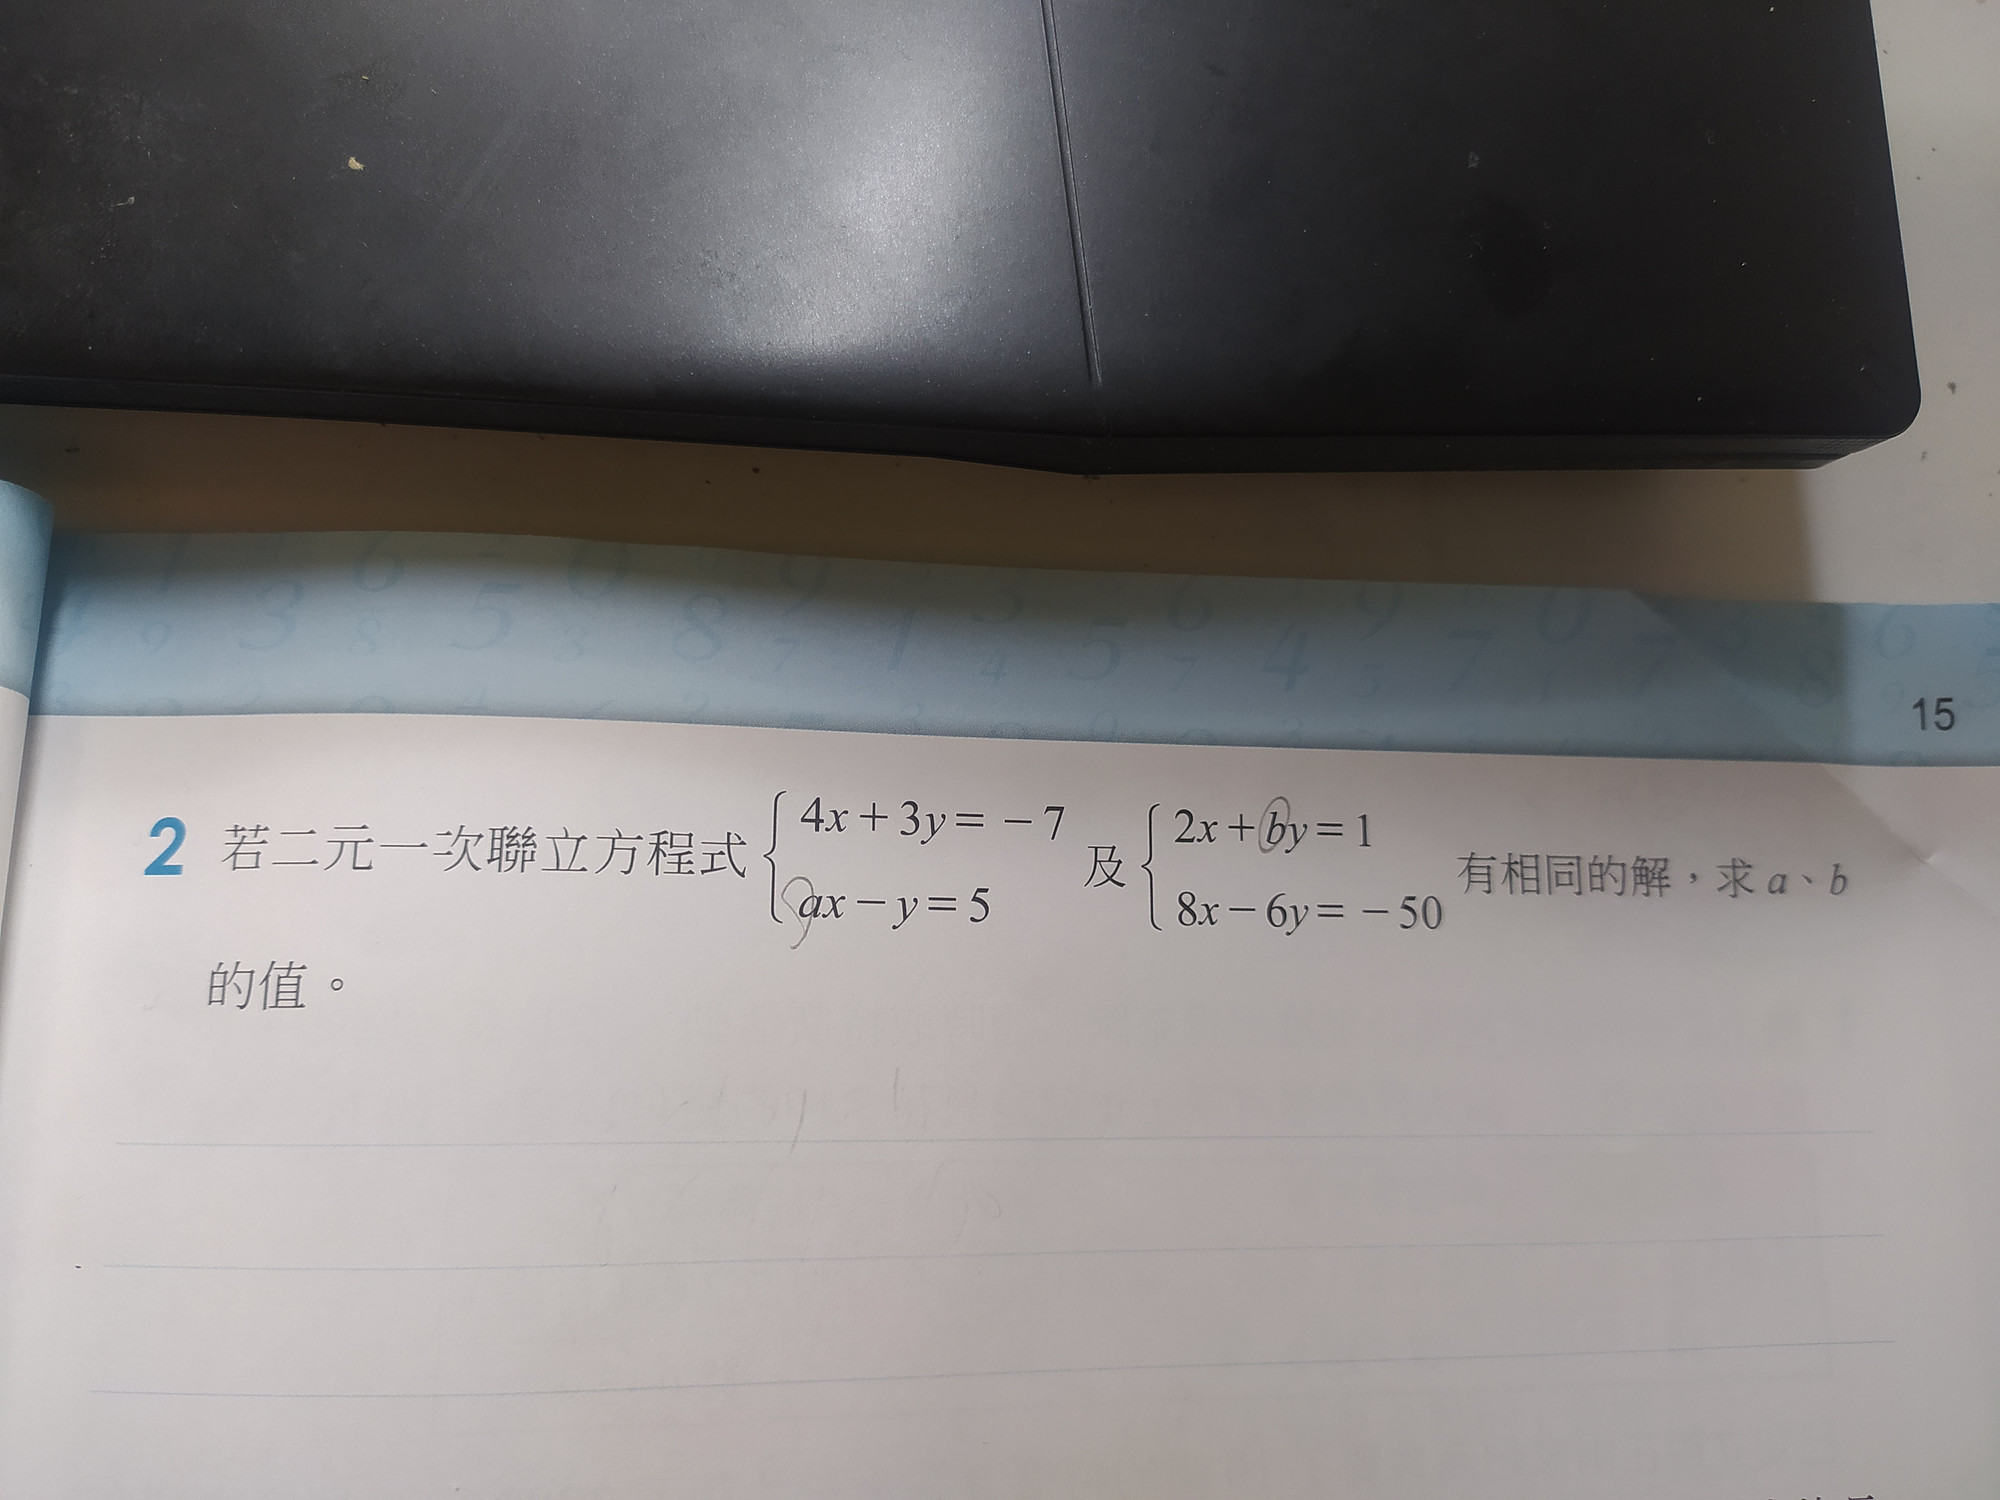 15
2 若二元一次聯立方程式 { 4x+3y=-7 ax-y=5 及 { 2x+by=1 8x-6y=-50 有相同的解，求 a、b
的值。